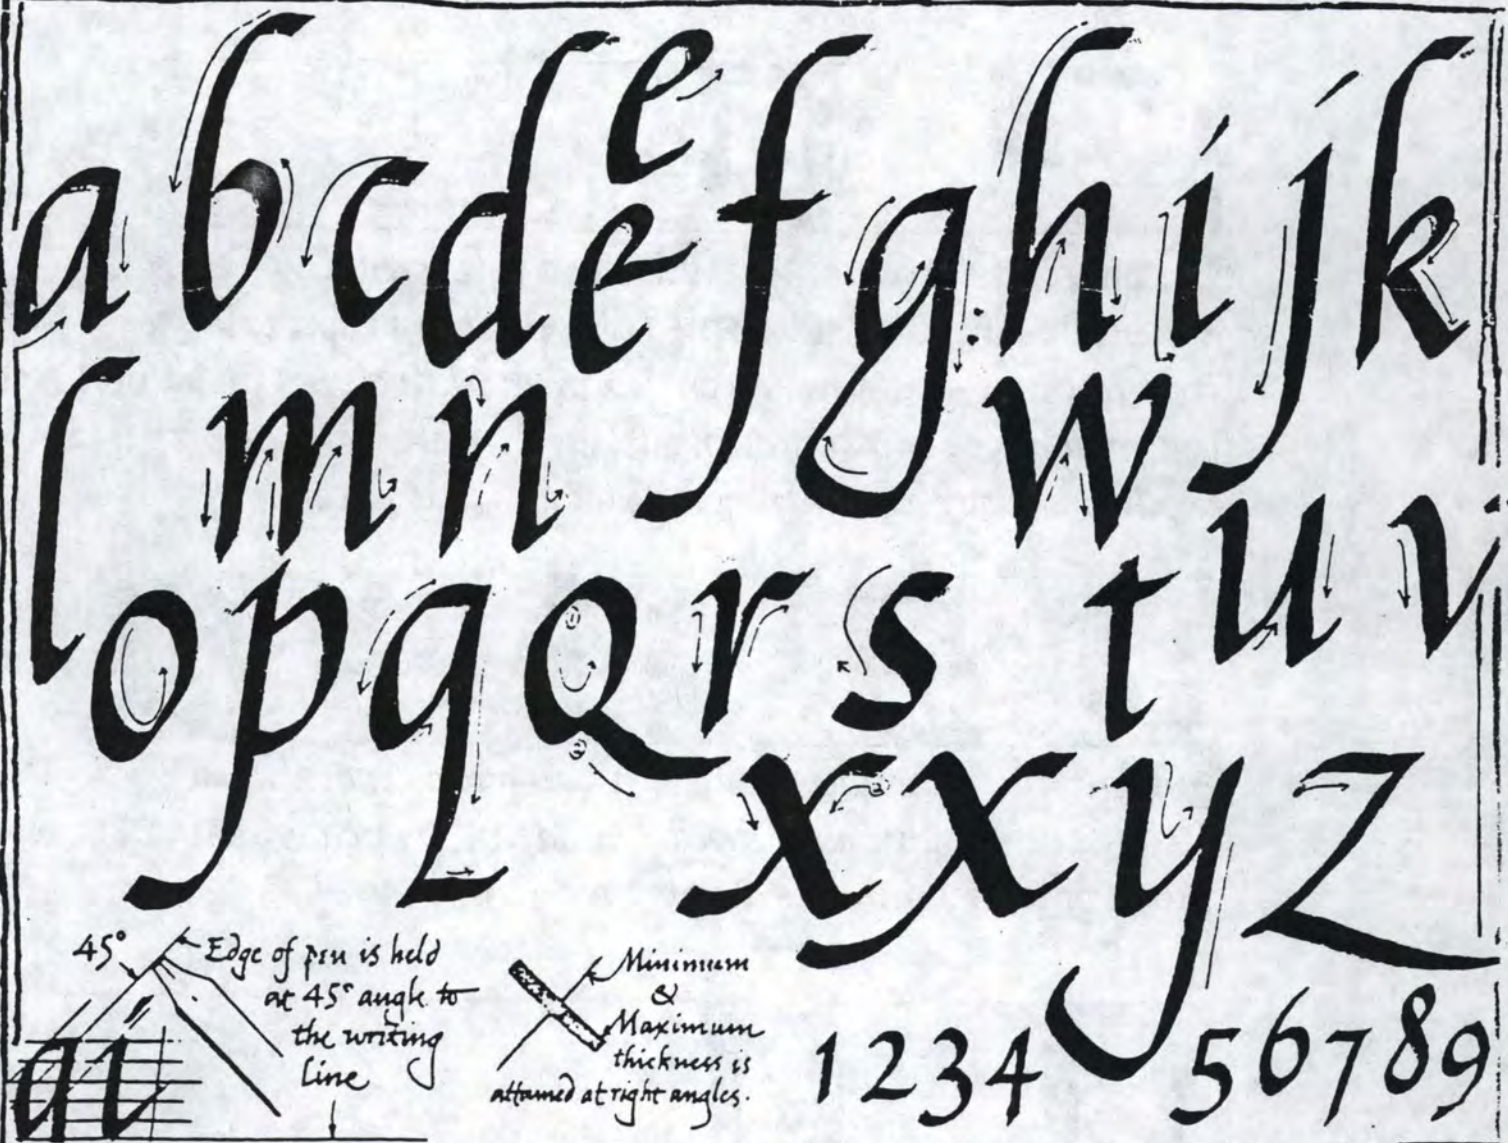 a b c d e e f g h i j k
l m n w u v
o p q Q r s t
x x y z
45°
Edge of pen is held
at 45° angle to
the writing
line
ai
Minimum
&
Maximum
thickness is
attained at right angles.
1 2 3 4 5 6 7 8 9